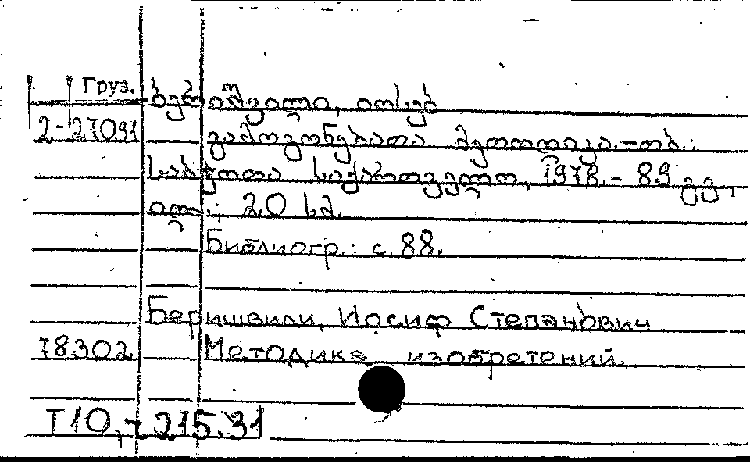 Груз. ბერიშვილი, იოსებ
2-27091 გამოგონებათა მეთოდიკა.-თბ.:
საბჭოთა საქართველო, 1978.- 89 გვ.,
ილ.; 20 სმ.
Библиогр.: с. 88.
Беришвили, Иосиф Степанович
78302 Методика изобретений.
Т10,-215.31